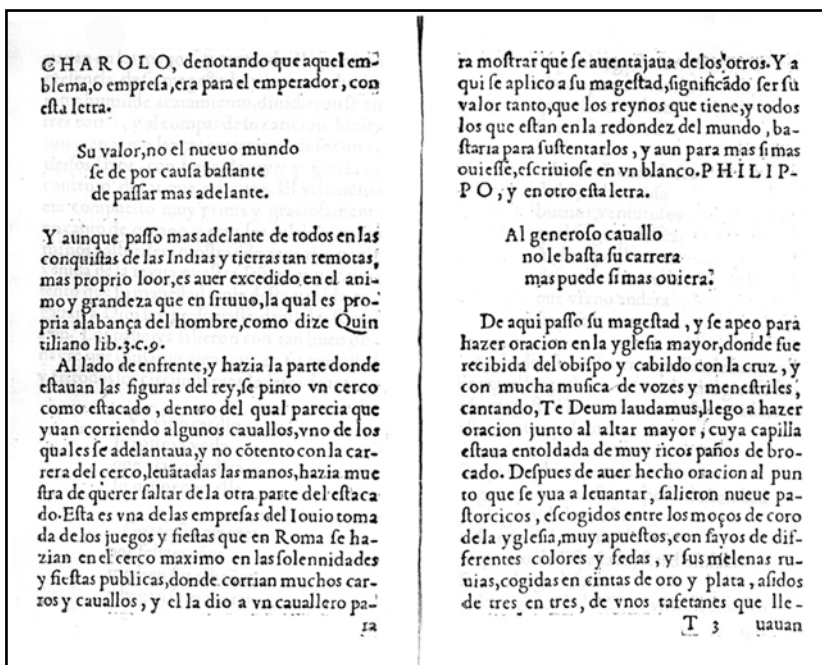 CHAROLO, denotando que aquel em-
blema,o empreſa,era para el emperador, con
eſta letra.
Su valor,no el nueuo mundo
ſe de por cauſa baſtante
de paſſar mas adelante.
Y aunque paſſo mas adelante de todos en las
conquiſtas de las Indias y tierras tan remotas,
mas proprio loor,es auer excedido en el ani-
mo y grandeza que en ſi tuuo,la qual es pro-
pria alabança del hombre,como dize Quin
tiliano lib.3.c.9.
Al lado de enfrente,y hazia la parte donde
eſtauan las figuras del rey,ſe pinto vn cerco
como eſtacado , dentro del qual parecia que
yuan corriendo algunos cauallos,vno de los
quales ſe adelantaua,y no cõtento con la car-
rera del cerco,leuãtadas las manos,hazia mue
ſtra de querer ſaltar de la otra parte del eſtaca
do.Eſta es vna de las empreſas del Iouio toma
da de los juegos y fieſtas que en Roma ſe ha-
zian en el cerco maximo en las ſolennidades
y fieſtas publicas,donde corrian muchos car-
ros y cauallos , y el la dio a vn cauallero pa-
ra
ra moſtrar que ſe auentajaua de los otros.Y a
qui ſe aplico a ſu mageſtad,ſignificãdo ſer ſu
valor tanto,que los reynos que tiene,y todos
los que eſtan en la redondez del mundo , ba-
ſtaria para ſuſtentarlos , y aun para mas ſi mas
ouieſſe,eſcriuioſe en vn blanco.PHILIP-
PO , y en otro eſta letra.
Al generoſo cauallo
no le baſta ſu carrera
mas puede ſi mas ouiera.
De aqui paſſo ſu mageſtad , y ſe apeo para
hazer oracion en la ygleſia mayor,donde fue
recibida del obiſpo y cabildo con la cruz , y
con mucha muſica de vozes y meneſtriles,
cantando,Te Deum laudamus,llego a hazer
oracion junto al altar mayor , cuya capilla
eſtaua entoldada de muy ricos paños de bro-
cado. Deſpues de auer hecho oracion al pun
to que ſe yua a leuantar, ſalieron nueue pa-
ſtorcicos , eſcogidos entre los moços de coro
de la ygleſia,muy apueſtos,con ſayos de dif-
ferentes colores y ſedas , y ſus melenas ru-
uias,cogidas en cintas de oro y plata , aſidos
de tres en tres, de vnos tafetanes que lle-
T 3 uauan